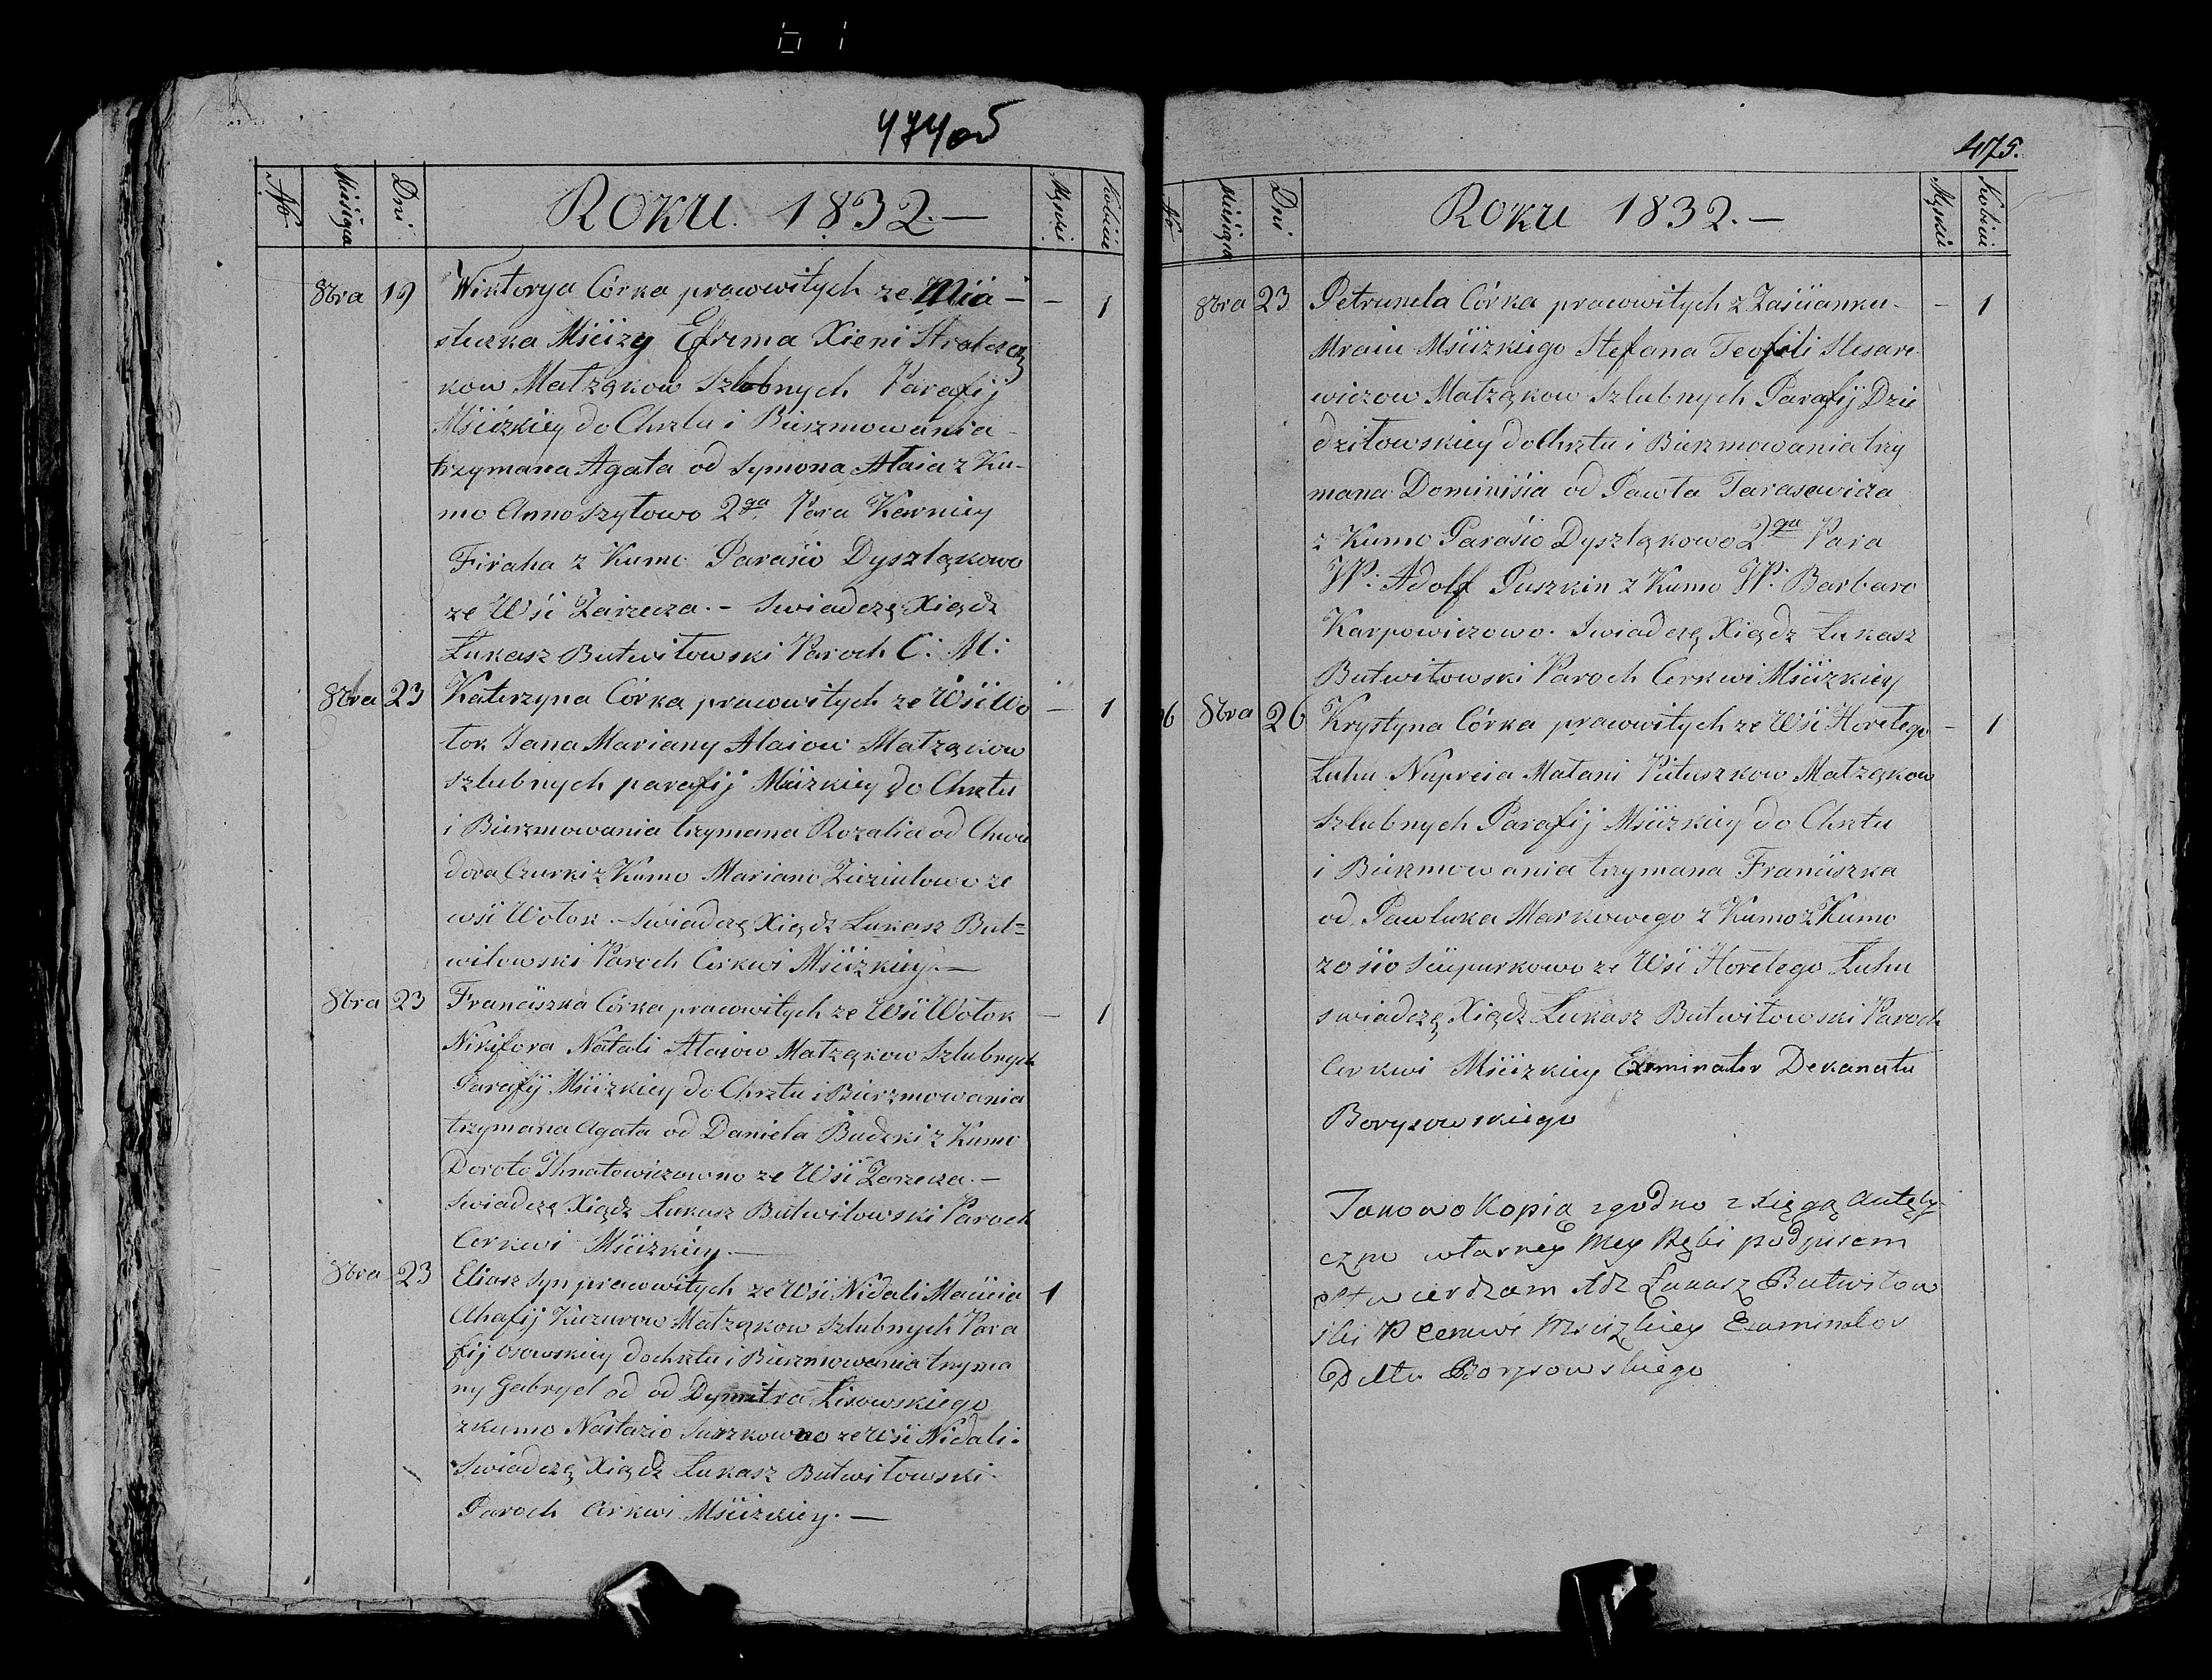 474 об
№ Miesiąca Dni. ROKU. 1832.— Męzki Kobiei
8bra 19 Wiktorya Córka pracowitych ze Mia- — 1
steczka Mścizy Efrema Xieni
kow Małżąkow Szlubnych Parafij
Mścizkiey do Chrztu i Bierzmowania
trzymana Agata od Symona Ałaia z Ku-
mo Anno Szyłowo 2ga Para Kerniey
Firaha z Kumo Paraśio Dyszląkowo
ze Wśi Zarzecza. – Swiadczę Xiądz
Łukasz Butwiłowski Paroch C: M:
8bra 23 Katerzyna Córka pracowitych ze Wśi Wo — 1
łok Jana Maryany Ałaiow Małżąkow
szlubnych parafij Mścizkiey do Chrztu
i Bierzmowania trzymana Rozalia od Chwe
dora Czurki z Kumo Mariano ze
wśi Wołok. – Swiadczę Xiądz Łukasz But=
wiłowski Paroch Cerkwi Mścizkiey. —
8bra 23 Franciszka Córka pracowitych ze Wśi Wołok — 1
Nikifora Natali Ałaiow Małżąkow Szlubnych
Parafij Mścizkiey do Chrztu i Bierzmowania
trzymana Agata od Daniela Budzki z Kumo
Doroto Ihnatowiczowno ze Wśi Zarzecza. –
Swiadczę Xiądz Łukasz Butwiłowski Paroch
Cerkwi Mścizkiey. —
8bra 23 Eliasz Syn pracowitych ze Wśi Nidali Macieia 1
Ahafij Kuzurow Małżąkow Szlubnych Para
fij Osowskiey do chrztu i Bierzmowania trzyma
ny Gabryel od od Dymitra Lisowskiego
z kumo Nastazio Suszkowno ze Wśi Nidali.
Swiadczę Xiądz Łukasz Butwiłowski
Paroch Cerkwi Mścizkiey. —
475.
№ Miesiąca Dni. ROKU 1832. — Męzkie Kobiei
8bra 23 Petrunela Córka pracowitych z Zaścianku — 1
Mraiu Mścizkiego Stefana Teofili Slesare
wiczow Małżąkow Szlubnych Parafij Dzie
dziłowskiey do Chrztu i Bierzmowania trzy
mana Dominiśia od Pawła Tarasewicza
z Kumo Paraśio Dyszląkowo 2ga Para
WP. Adolf Puszkin z Kumo WP. Barbaro
Karpowiczowo. Swiadczę Xiądz Łukasz
Butwiłowski Paroch Cerkwi Mścizkiey
8bra 26 Krystyna Córka pracowitych ze Wśi Horełego — 1
Łuhu Nupreia Małani Pietuszkow Małżąkow
Szlubnych Parafij Mścizkiey do Chrztu
i Bierzmowania trzymana Franciszka
od Pawluka Markowego z Kumo z Kumo
zośio Sciepurkowo ze Wśi Horełego Łuhu
swiadczę Xiądz Łukasz Butwiłowski Paroch
Cerkwi Mścizkiey Exminator Dekanatu
Borysowskiego
Takowo Kopia zgodno z Xięgą Autęty-
czno własney Mey Rębi podpisem
stwierdzam Xdz Łukasz Butwiłow
ski P Cerkwi Mscizkiey Examinator
Borysowskiego